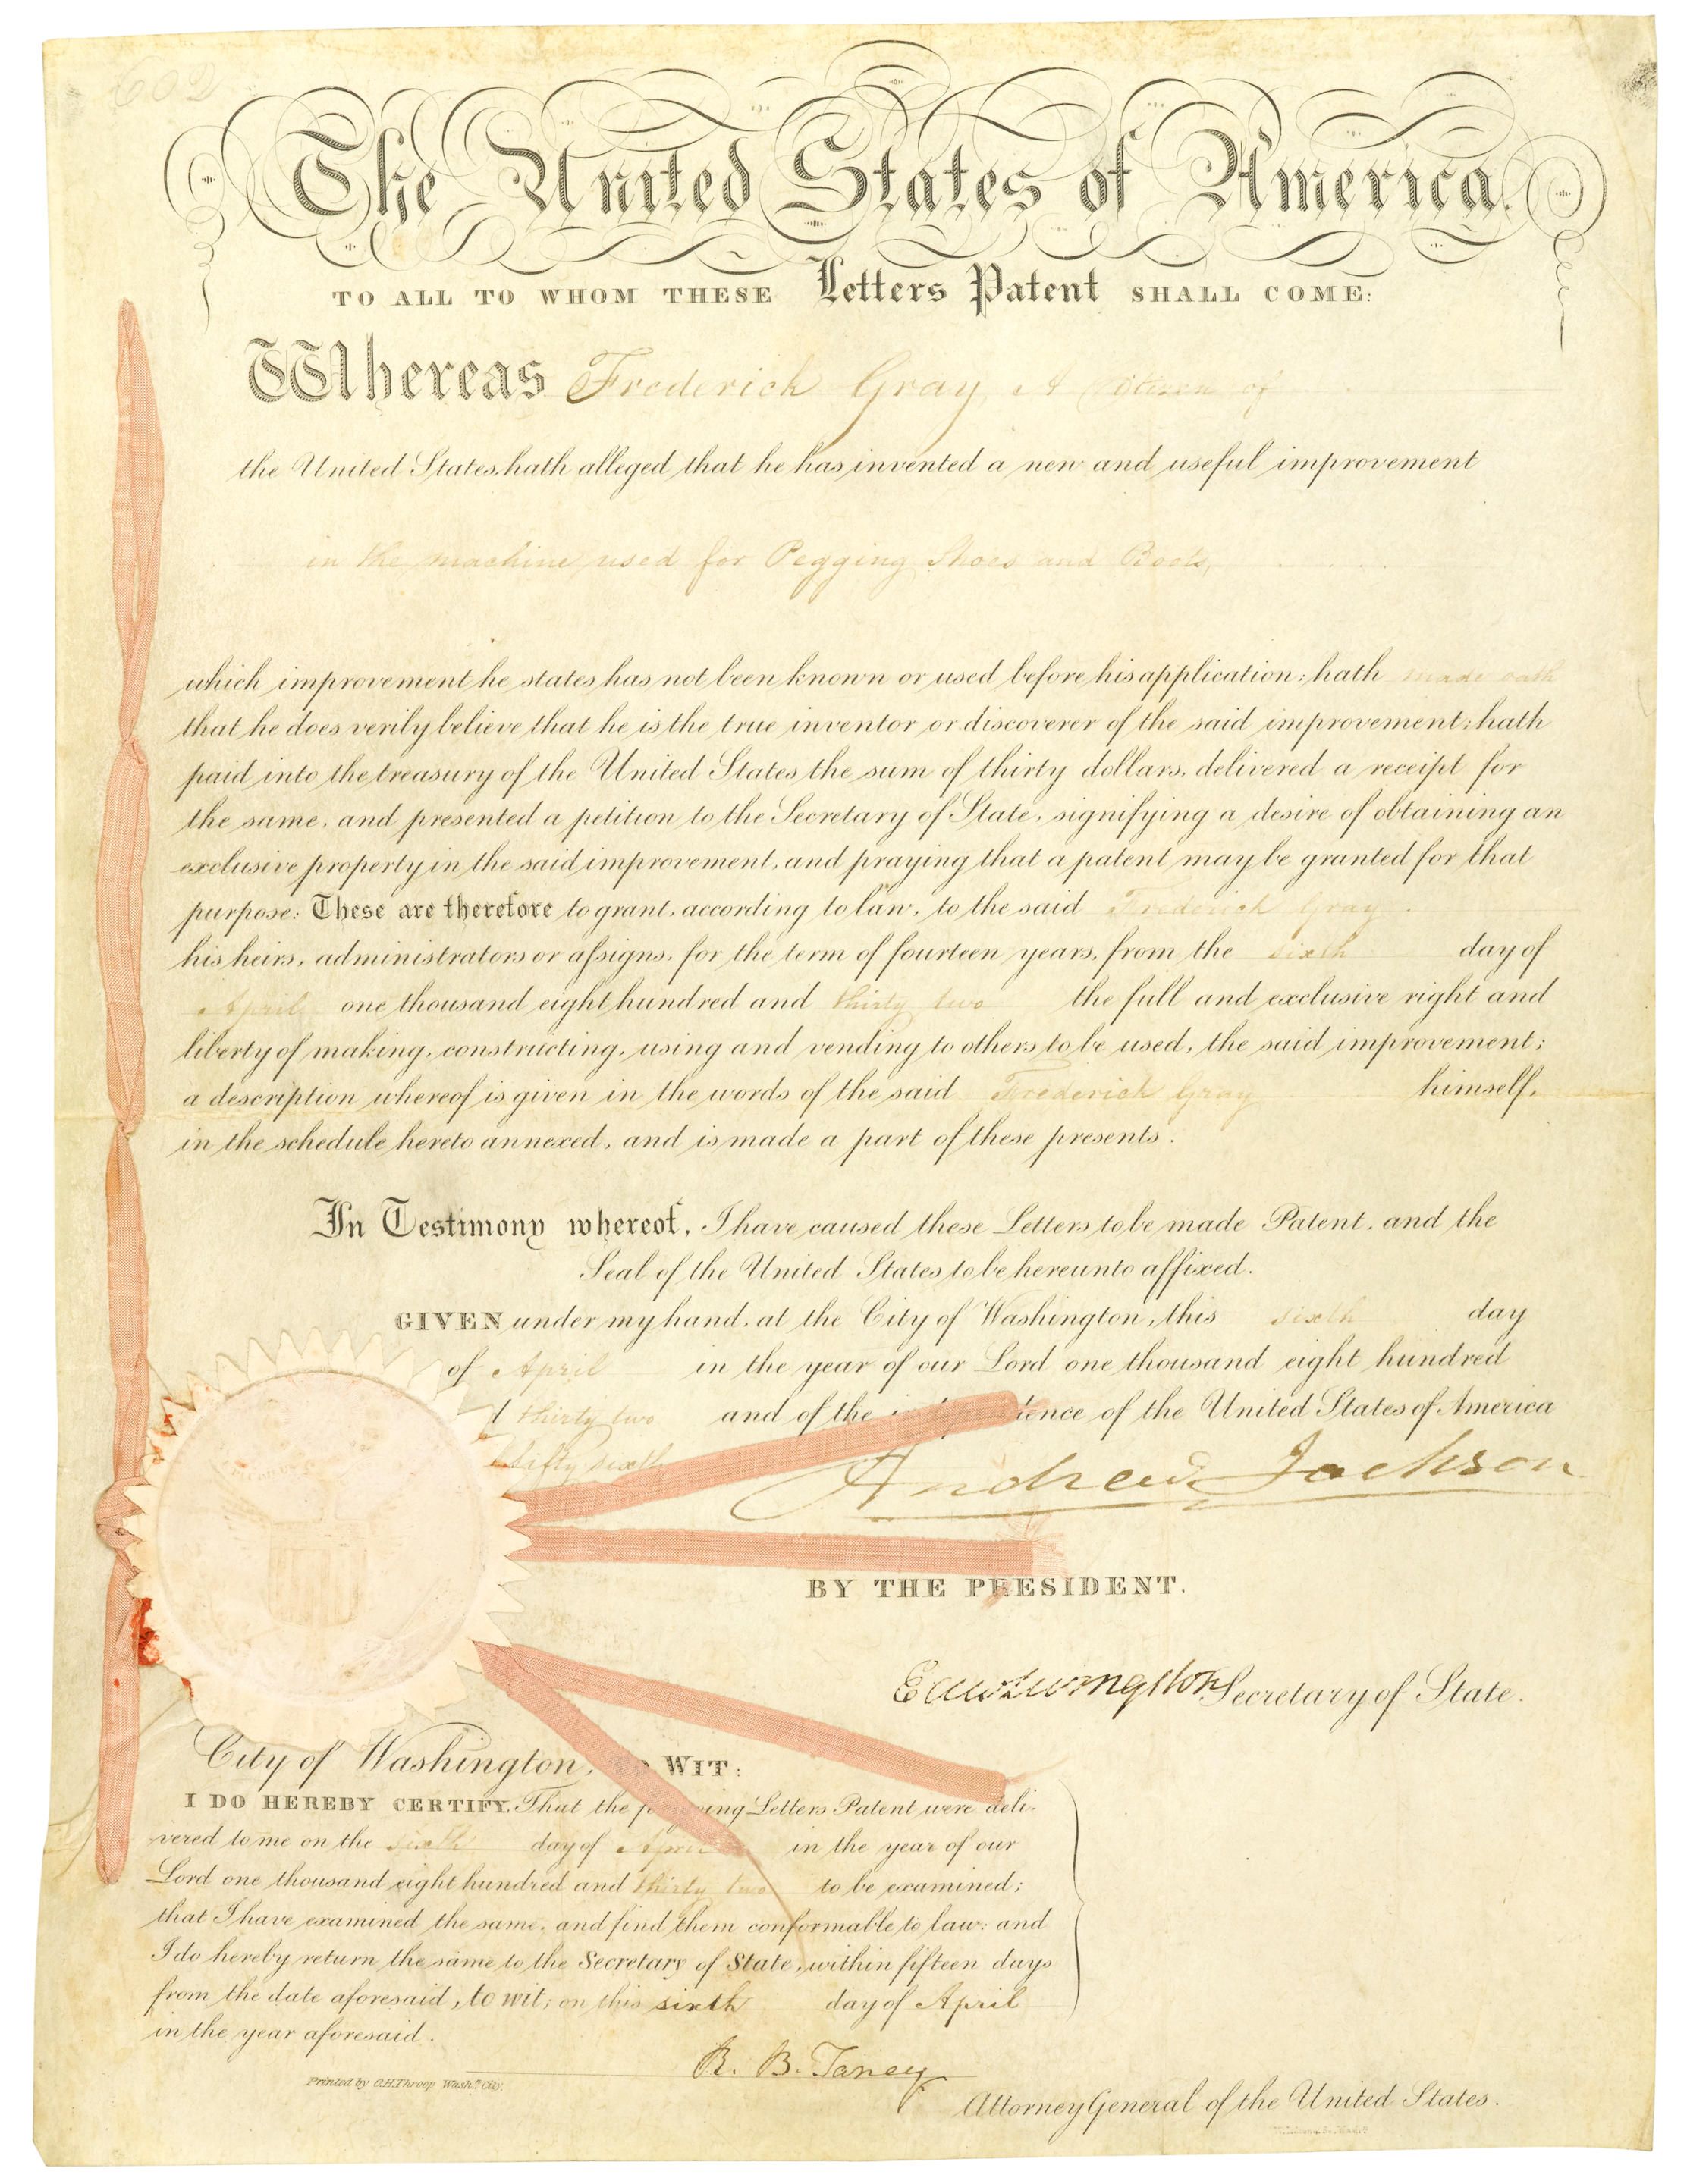 602
The United States of America.
TO ALL TO WHOM THESE Letters Patent SHALL COME:
Whereas Frederick Gray, A Citizen of
the United States, hath alleged that he has invented a new and useful improvement
in the machine used for Pegging Shoes and Boots,
which improvement he states has not been known or used before his application: hath made oath
that he does verily believe that he is the true inventor or discoverer of the said improvement; hath
paid into the treasury of the United States the sum of thirty dollars, delivered a receipt for
the same, and presented a petition to the Secretary of State, signifying a desire of obtaining an
exclusive property in the said improvement, and praying that a patent may be granted for that
purpose: These are therefore to grant, according to law, to the said Frederick Gray
his heirs, administrators or assigns, for the term of fourteen years, from the sixth day of
April one thousand eight hundred and thirty two the full and exclusive right and
liberty of making, constructing, using and vending to others to be used, the said improvement;
a description whereof is given in the words of the said Frederick Gray himself,
in the schedule hereto annexed, and is made a part of these presents.
In Testimony whereof, I have caused these Letters to be made Patent, and the
Seal of the United States to be hereunto affixed.
GIVEN under my hand, at the City of Washington, this sixth day
of April in the year of our Lord one thousand eight hundred
thirty two and of the independence of the United States of America
fifty sixth
Andrew Jackson
BY THE PRESIDENT.
Edw. Livingston Secretary of State.
City of Washington, TO WIT:
I DO HEREBY CERTIFY, That the foregoing Letters Patent were deli-
vered to me on the sixth day of April in the year of our
Lord one thousand eight hundred and thirty two to be examined;
that I have examined the same, and find them conformable to law: and
I do hereby return the same to the Secretary of State, within fifteen days
from the date aforesaid, to wit; on this sixth day of April
in the year aforesaid.
R. B. Taney
Printed by O.H. Throop Washn. City.
Attorney General of the United States.